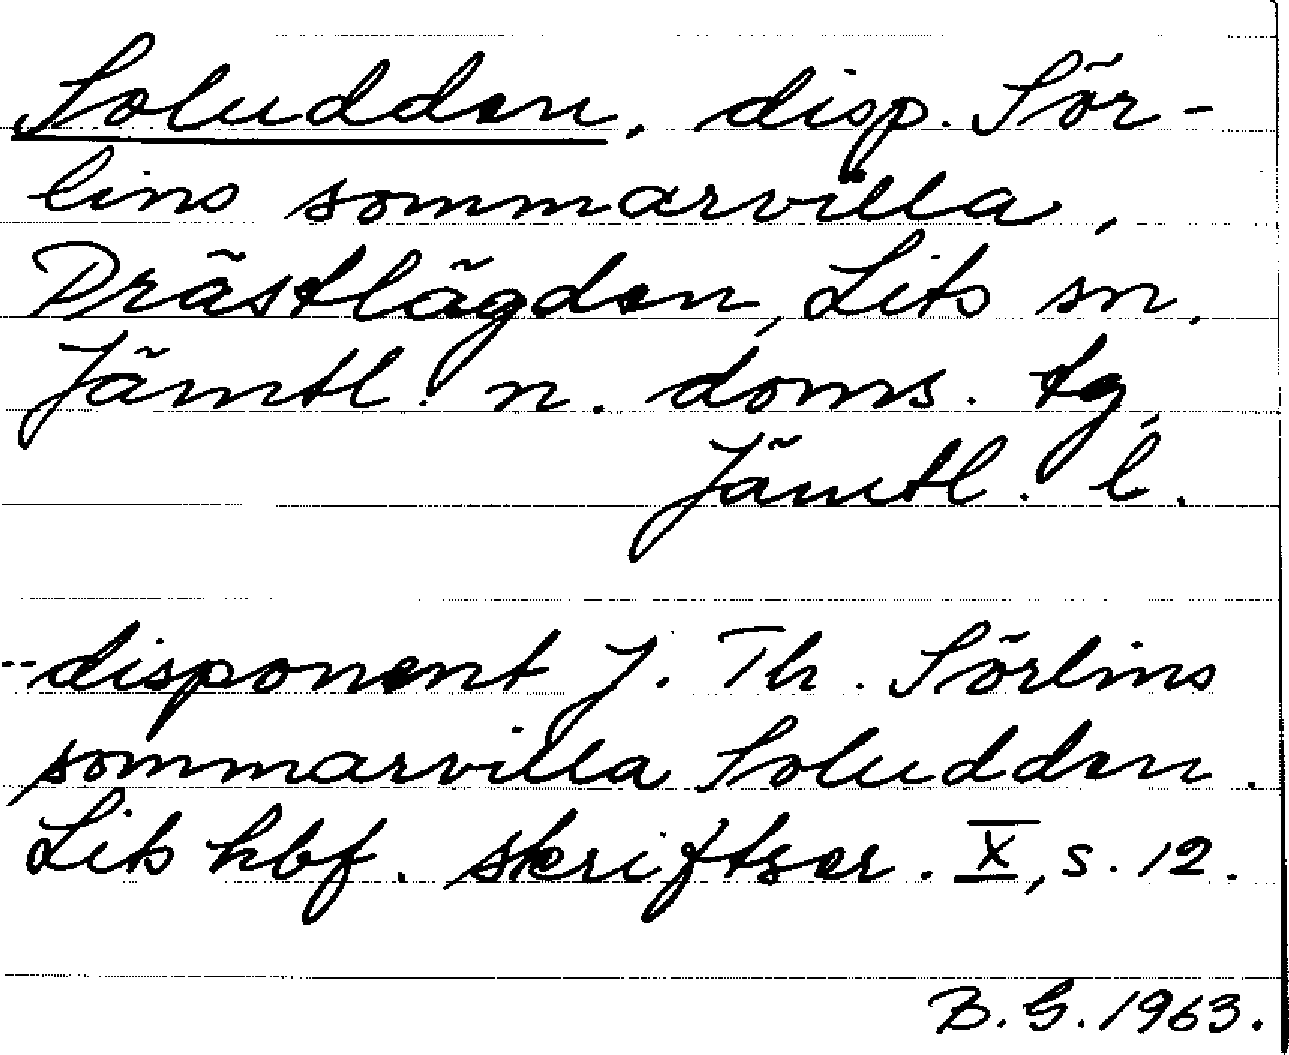 Soludden, disp. Sör-
lins sommarvilla,
Prästlägden, Lits sn,
Jämtl. n. doms. tg,
Jämtl. l.
--disponent J. Th. Sörlins
sommarvilla Soludden.
Lits hbf. skriftser. X, s. 12.
B. G. 1963.